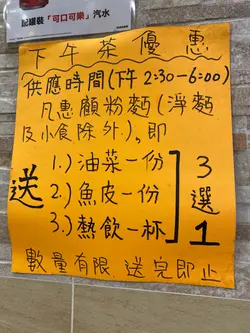 配罐裝「可口可樂」汽水
下午茶優惠
供應時間(下午2:30-6:00)
凡惠顧粉麵(淨麵
及小食除外),即
送
1.)油菜一份
2.)魚皮一份
3.)熱飲一杯
3選1
數量有限 送完即止